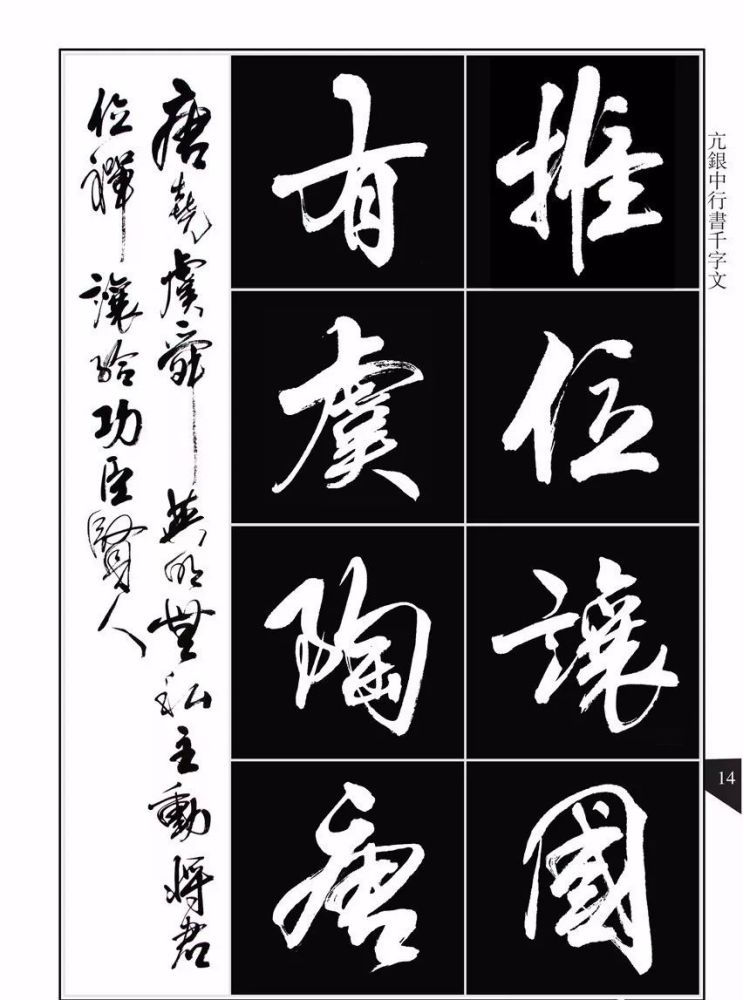 亢銀中行書千字文
推位讓國
有虞陶唐
唐堯虞舜英明無私主動將君
位禪讓給功臣賢人
14